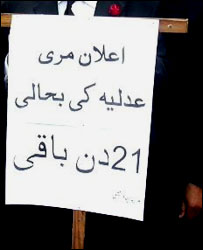 اعلان مری
عدلیہ کی بحالی
21 دن باقی